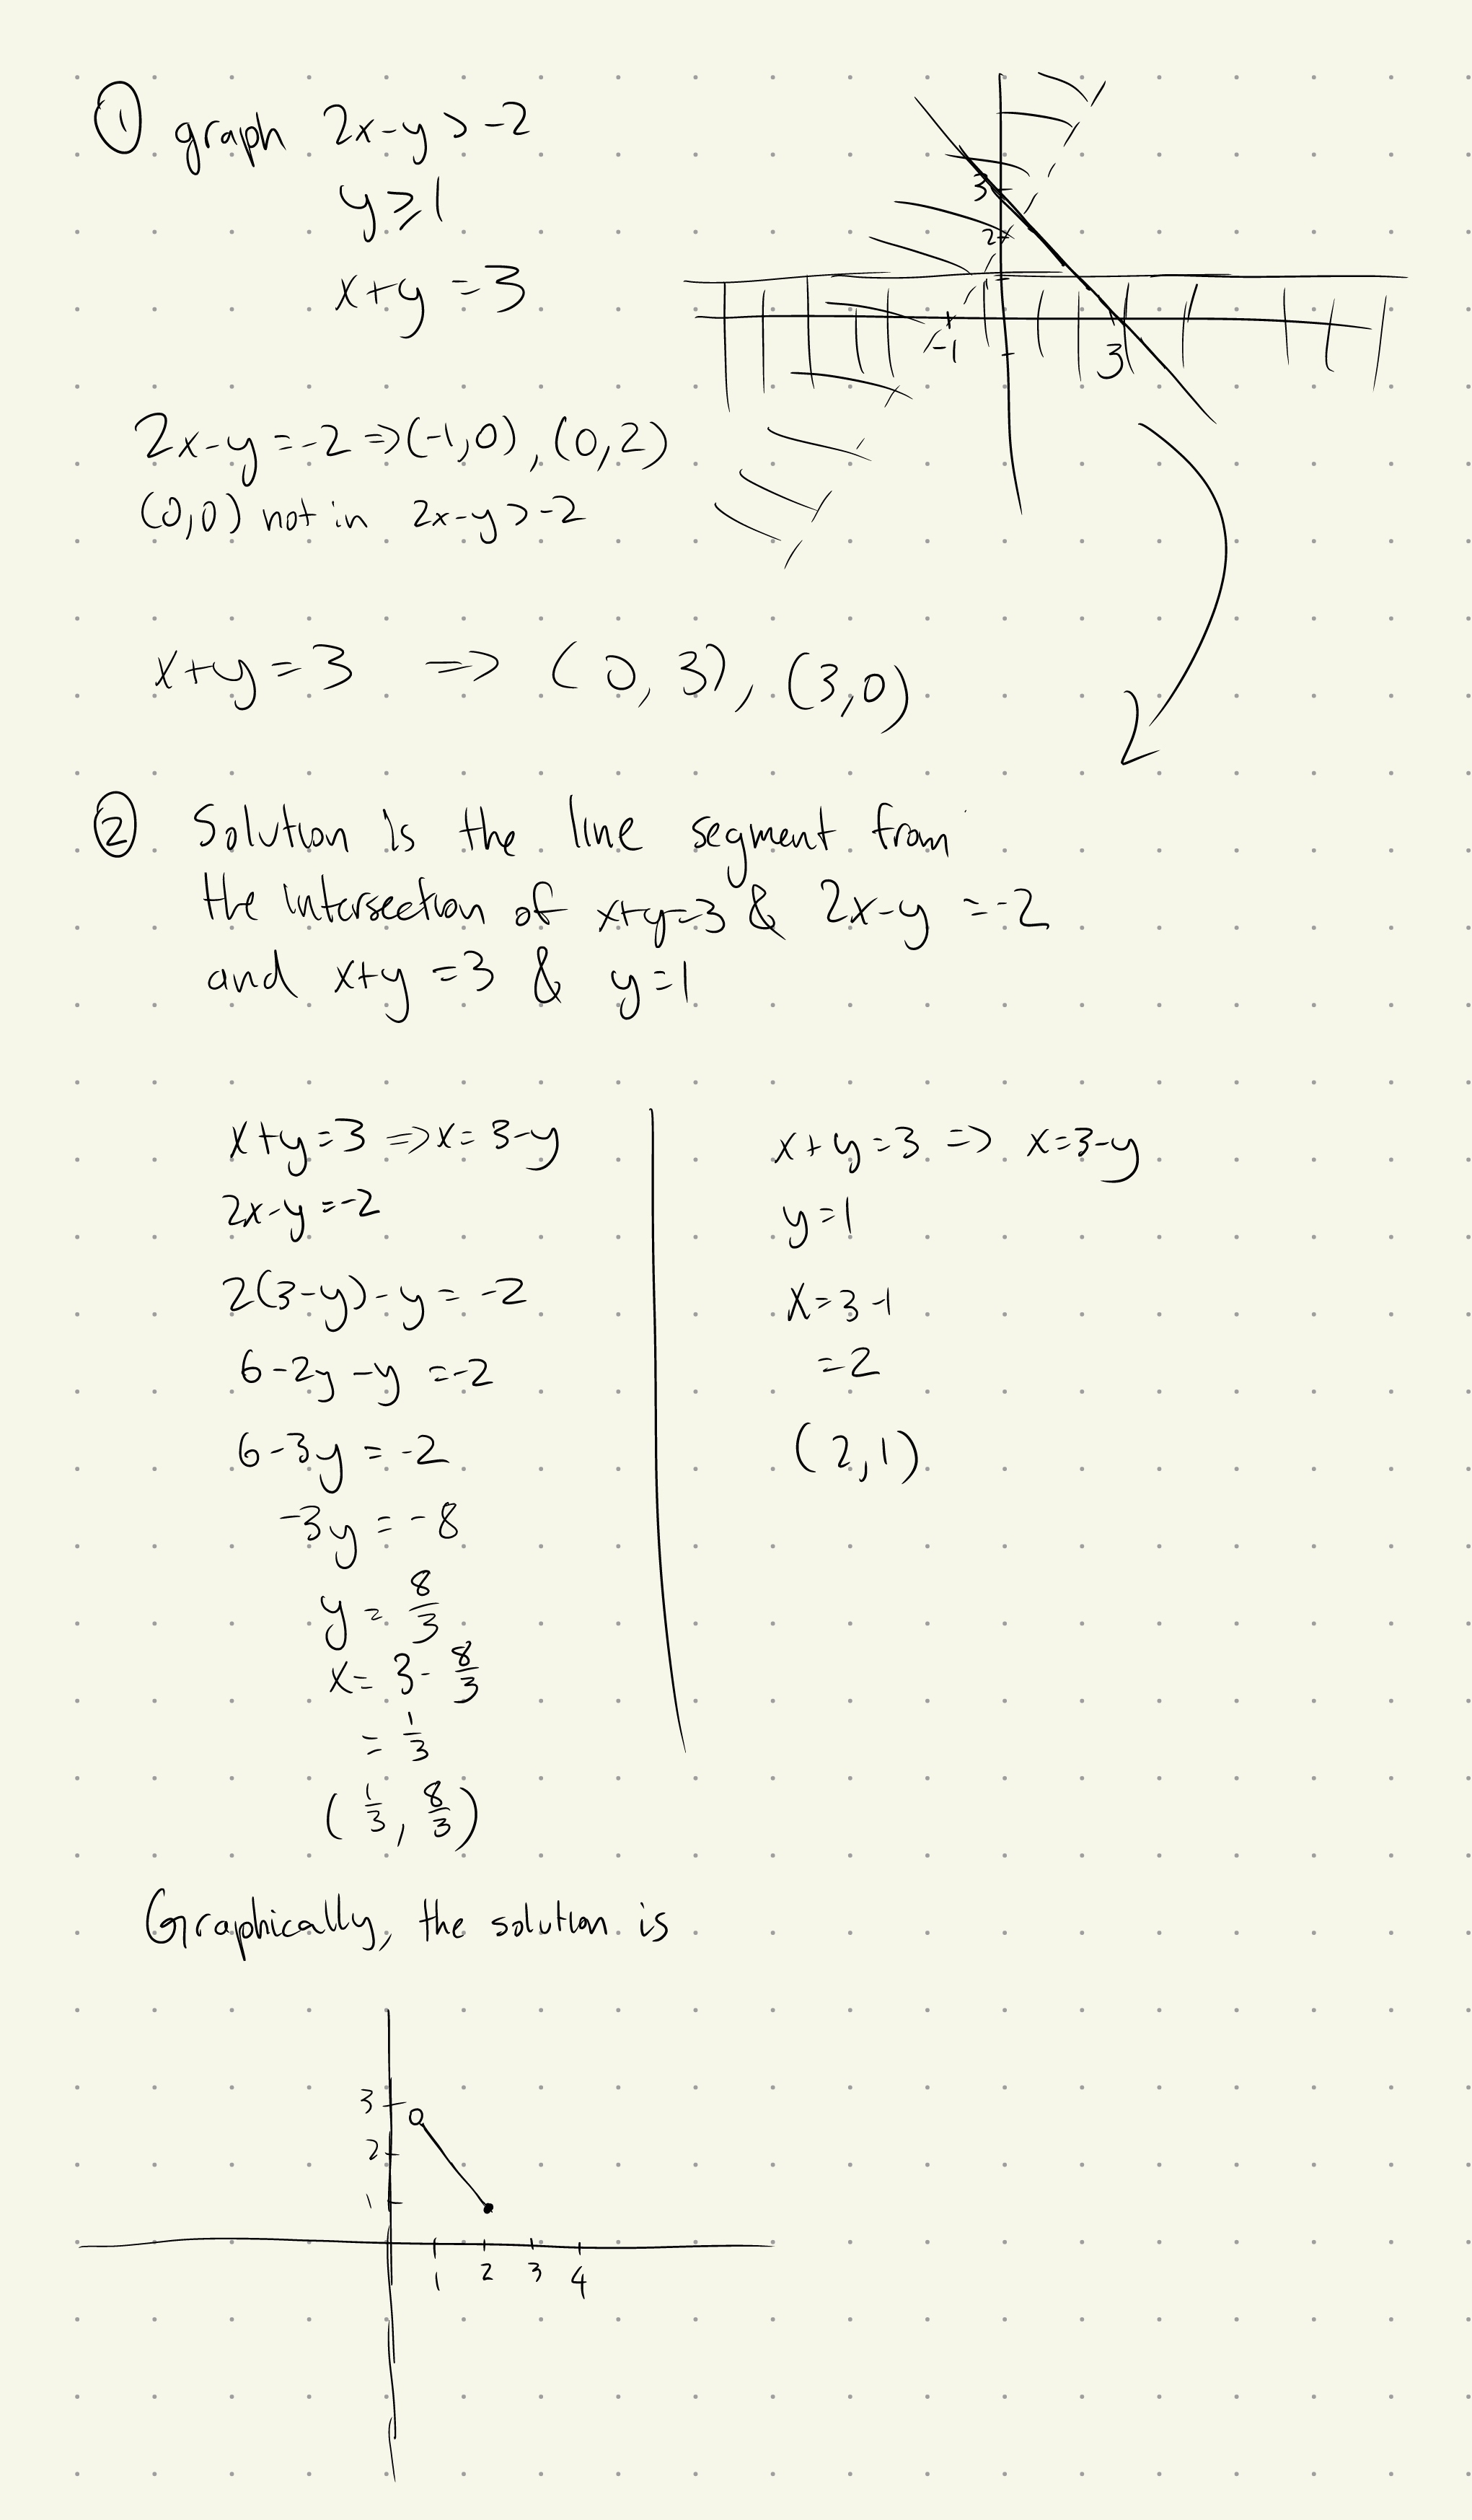 ① graph 2x-y > -2
y ≥ 1
x+y = 3
3
2
1
-1
3
2x-y = -2 => (-1,0), (0,2)
(0,0) not in 2x-y > -2
x+y = 3 => (0, 3), (3,0)
② Solution is the line segment from
the intersection of x+y=3 & 2x-y = -2
and x+y = 3 & y=1
x+y=3 => x = 3-y
2x-y = -2
2(3-y)-y = -2
6-2y-y = -2
6-3y = -2
-3y = -8
y = 8/3
x = 3 - 8/3
= 1/3
(1/3, 8/3)
x+y=3 => x=3-y
y=1
x=3-1
=2
(2,1)
Graphically, the solution is
3
2
1
1 2 3 4